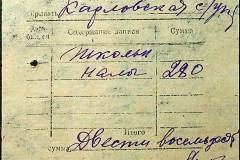 Карловская с/упр
Содержание записи Сумма
Школьн
налог 280
Итого
Двести восемьдес
сумма